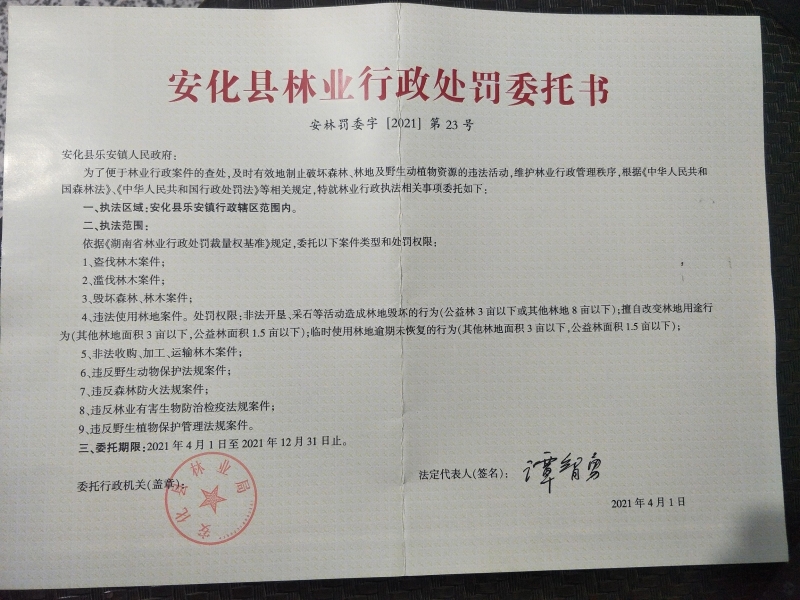 安化县林业行政处罚委托书
安林罚委字［2021］第 23 号
安化县乐安镇人民政府：
为了便于林业行政案件的查处，及时有效地制止破坏森林、林地及野生动植物资源的违法活动，维护林业行政管理秩序，根据《中华人民共和
国森林法》、《中华人民共和国行政处罚法》等相关规定，特就林业行政执法相关事项委托如下：
一、执法区域：安化县乐安镇行政辖区范围内。
二、执法范围：
依据《湖南省林业行政处罚裁量权基准》规定，委托以下案件类型和处罚权限；
1、盗伐林木案件；
2、滥伐林木案件；
3、毁坏森林、林木案件；
4、违法使用林地案件。处罚权限：非法开垦、采石等活动造成林地毁坏的行为（公益林 3 亩以下或其他林地 8 亩以下）；擅自改变林地用途行
为（其他林地面积 3 亩以下，公益林面积 1.5 亩以下）；临时使用林地逾期未恢复的行为（其他林地面积 3 亩以下，公益林面积 1.5 亩以下）；
5、非法收购、加工、运输林木案件；
6、违反野生动物保护法规案件；
7、违反森林防火法规案件；
8、违反林业有害生物防治检疫法规案件；
9、违反野生植物保护管理法规案件。
三、委托期限：2021 年 4 月 1 日至 2021 年 12 月 31 日止。
委托行政机关（盖章）：
安化县林业局
法定代表人（签名）：谭智勇
2021 年 4 月 1 日